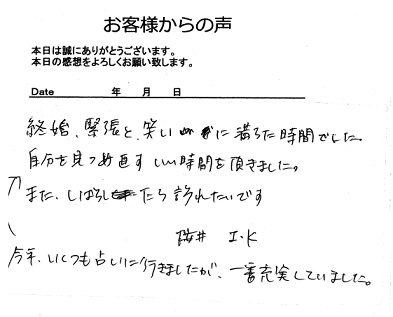 お客様からの声
本日は誠にありがとうございます。
本日の感想をよろしくお願い致します。
Date 年 月 日
終始、緊張と、笑いに満ちた時間でした。
自分を見つめ直すいい時間を頂きました。
また、しばらくしたら訪れたいです
桜井 I・K
今年、いくつも占いに行きましたが、一番充実していました。